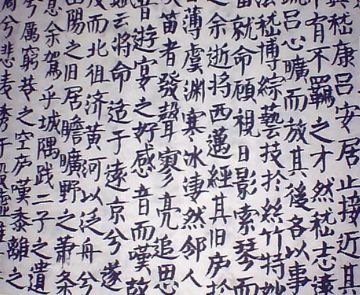 嵇康呂安居止接近其
有不羈之才然嵇志遠
呂心曠而放其後各以事
法嵇博綜藝技於絲竹特妙
當就命顧視日影索琴而
余逝將西邁經其舊廬於
薄虞淵寒冰淒然鄰人
笛者發聲寥亮追思
昔遊宴之好感音而嘆故
云將命適于遠京兮遂
而北徂濟黃河以泛舟兮
陽之舊居瞻曠野之蕭條
息余駕乎城隅踐二子之遺
兮歷窮巷之空廬嘆黍離之
周兮悲麥秀于